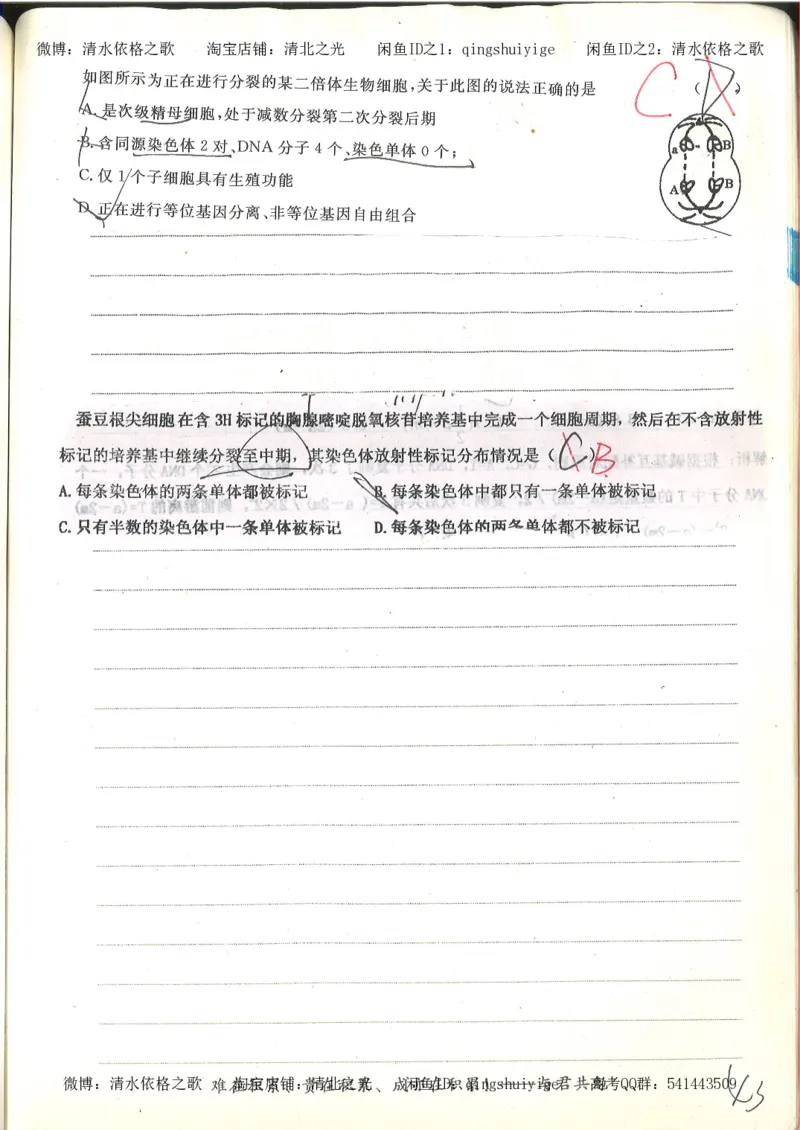 微博：清水依格之歌 淘宝店铺：清北之光 闲鱼ID之1：qingshuiyige 闲鱼ID之2：清水依格之歌
如图所示为正在进行分裂的某二倍体生物细胞,关于此图的说法正确的是 ( D ) C
A. 是次级精母细胞,处于减数分裂第二次分裂后期
B. 含同源染色体 2 对、DNA 分子 4 个、染色单体 0 个;
C. 仅 1 个子细胞具有生殖功能
D. 正在进行等位基因分离、非等位基因自由组合
a B
A B
T
蚕豆根尖细胞在含 3H 标记的胸腺嘧啶脱氧核苷培养基中完成一个细胞周期，然后在不含放射性
标记的培养基中继续分裂至中期，其染色体放射性标记分布情况是（ C ）B
A. 每条染色体的两条单体都被标记 B. 每条染色体中都只有一条单体被标记
C. 只有半数的染色体中一条单体被标记 D. 每条染色体的两条单体都不被标记
微博：清水依格之歌 淘宝店铺：清北之光 闲鱼ID之1：qingshuiyige 高考QQ群：541443509